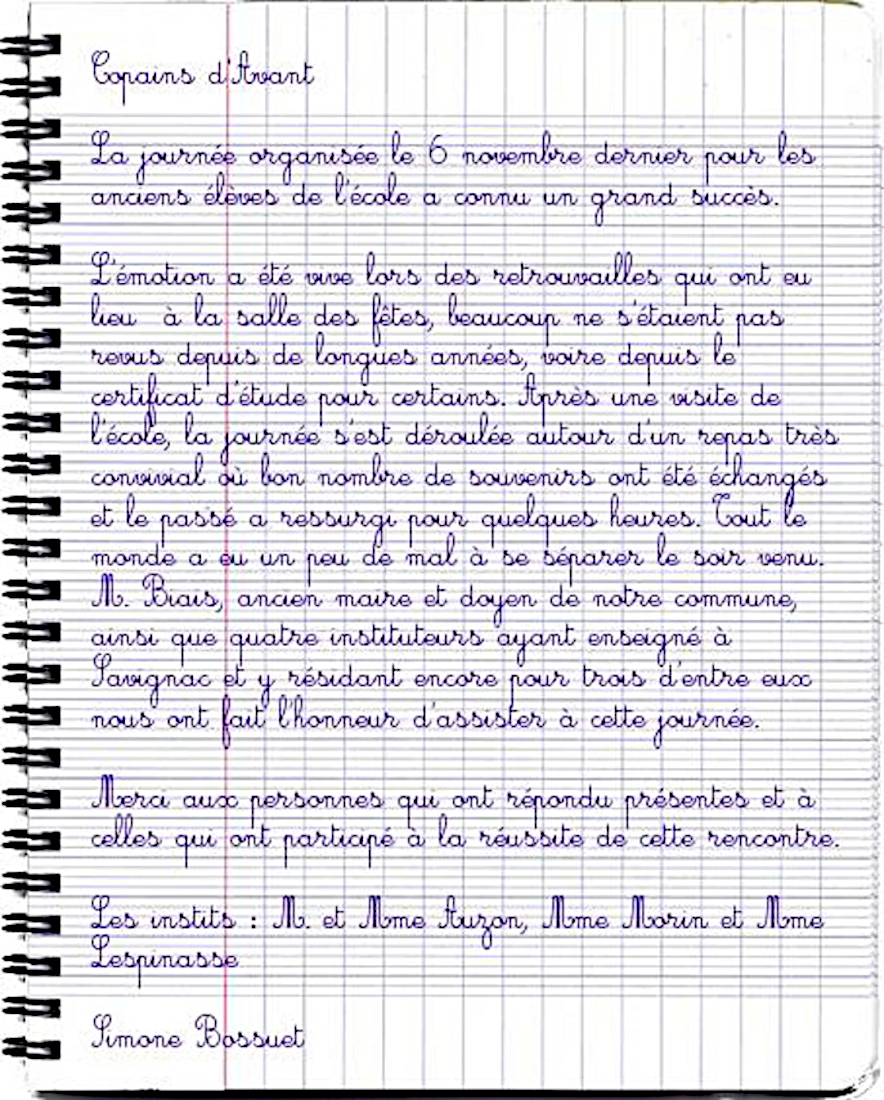 Copains d'Avant
La journée organisée le 6 novembre dernier pour les
anciens élèves de l'école a connu un grand succès.
L'émotion a été vive lors des retrouvailles qui ont eu
lieu à la salle des fêtes, beaucoup ne s'étaient pas
revus depuis de longues années, voire depuis le
certificat d'étude pour certains. Après une visite de
l'école, la journée s'est déroulée autour d'un repas très
convivial où bon nombre de souvenirs ont été échangés
et le passé a ressurgi pour quelques heures. Tout le
monde a eu un peu de mal à se séparer le soir venu.
M. Biais, ancien maire et doyen de notre commune,
ainsi que quatre instituteurs ayant enseigné à
Savignac et y résidant encore pour trois d'entre eux
nous ont fait l'honneur d'assister à cette journée.
Merci aux personnes qui ont répondu présentes et à
celles qui ont participé à la réussite de cette rencontre.
Les instits : M. et Mme Auzon, Mme Morin et Mme
Lespinasse
Simone Bossuet